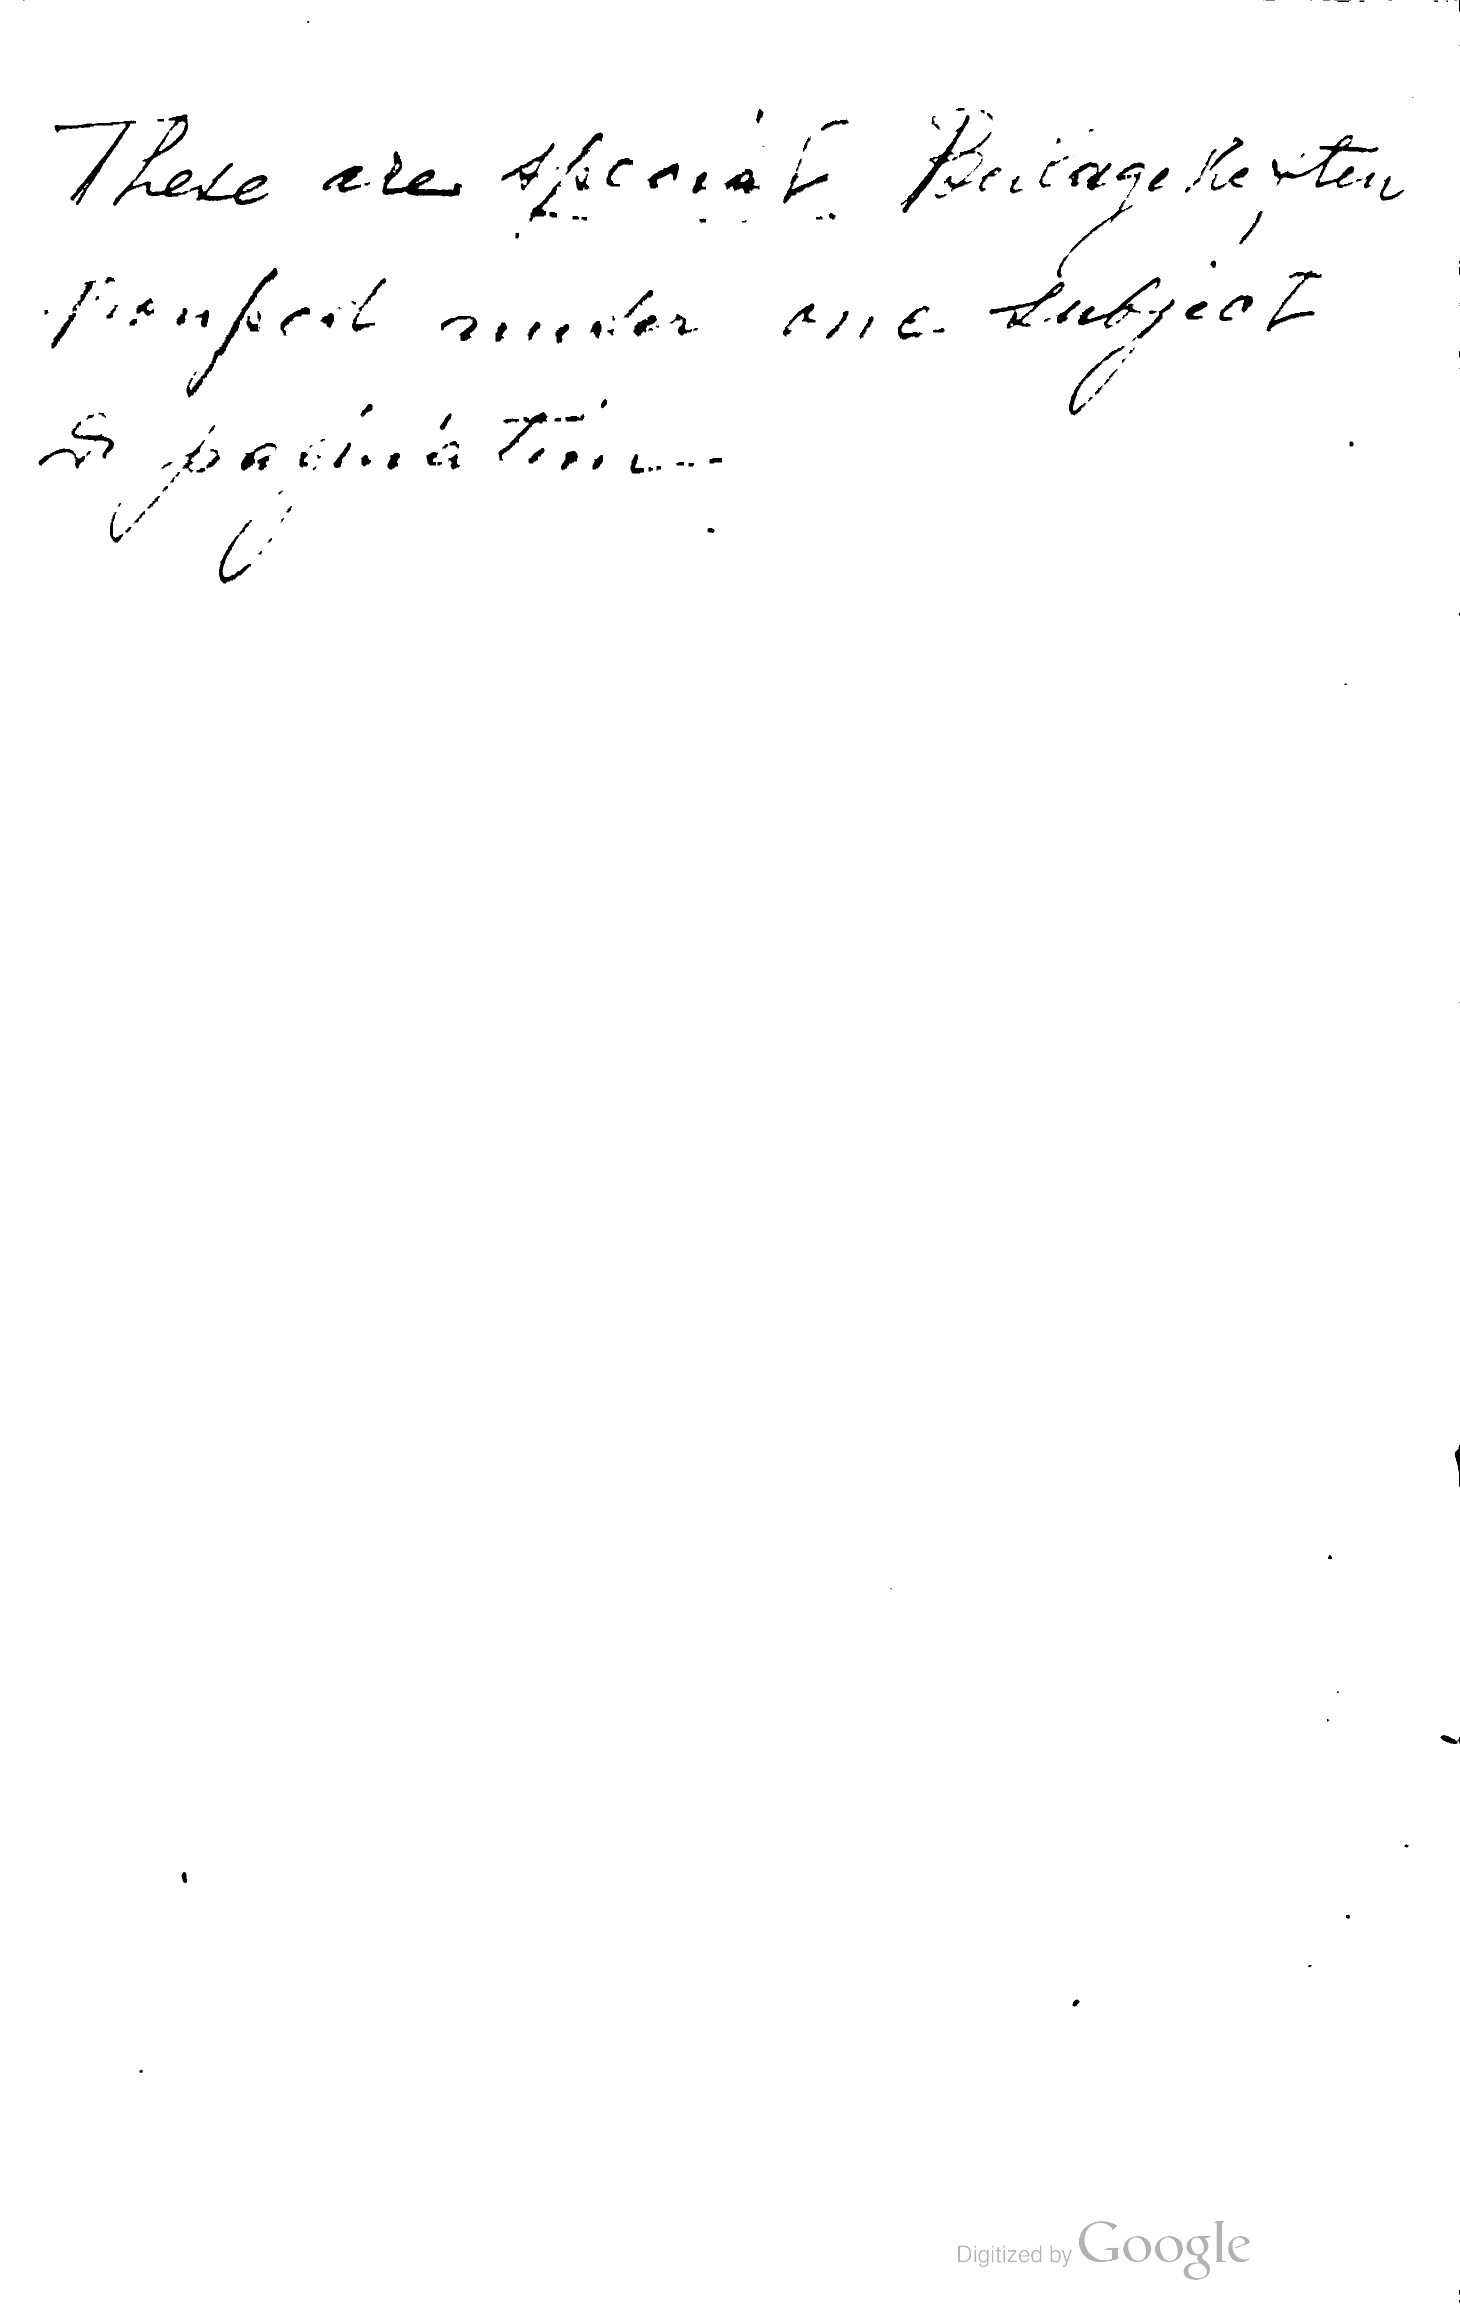 These are special Beilagehefte,
grouped under one subject
& pagination
Digitized by Google